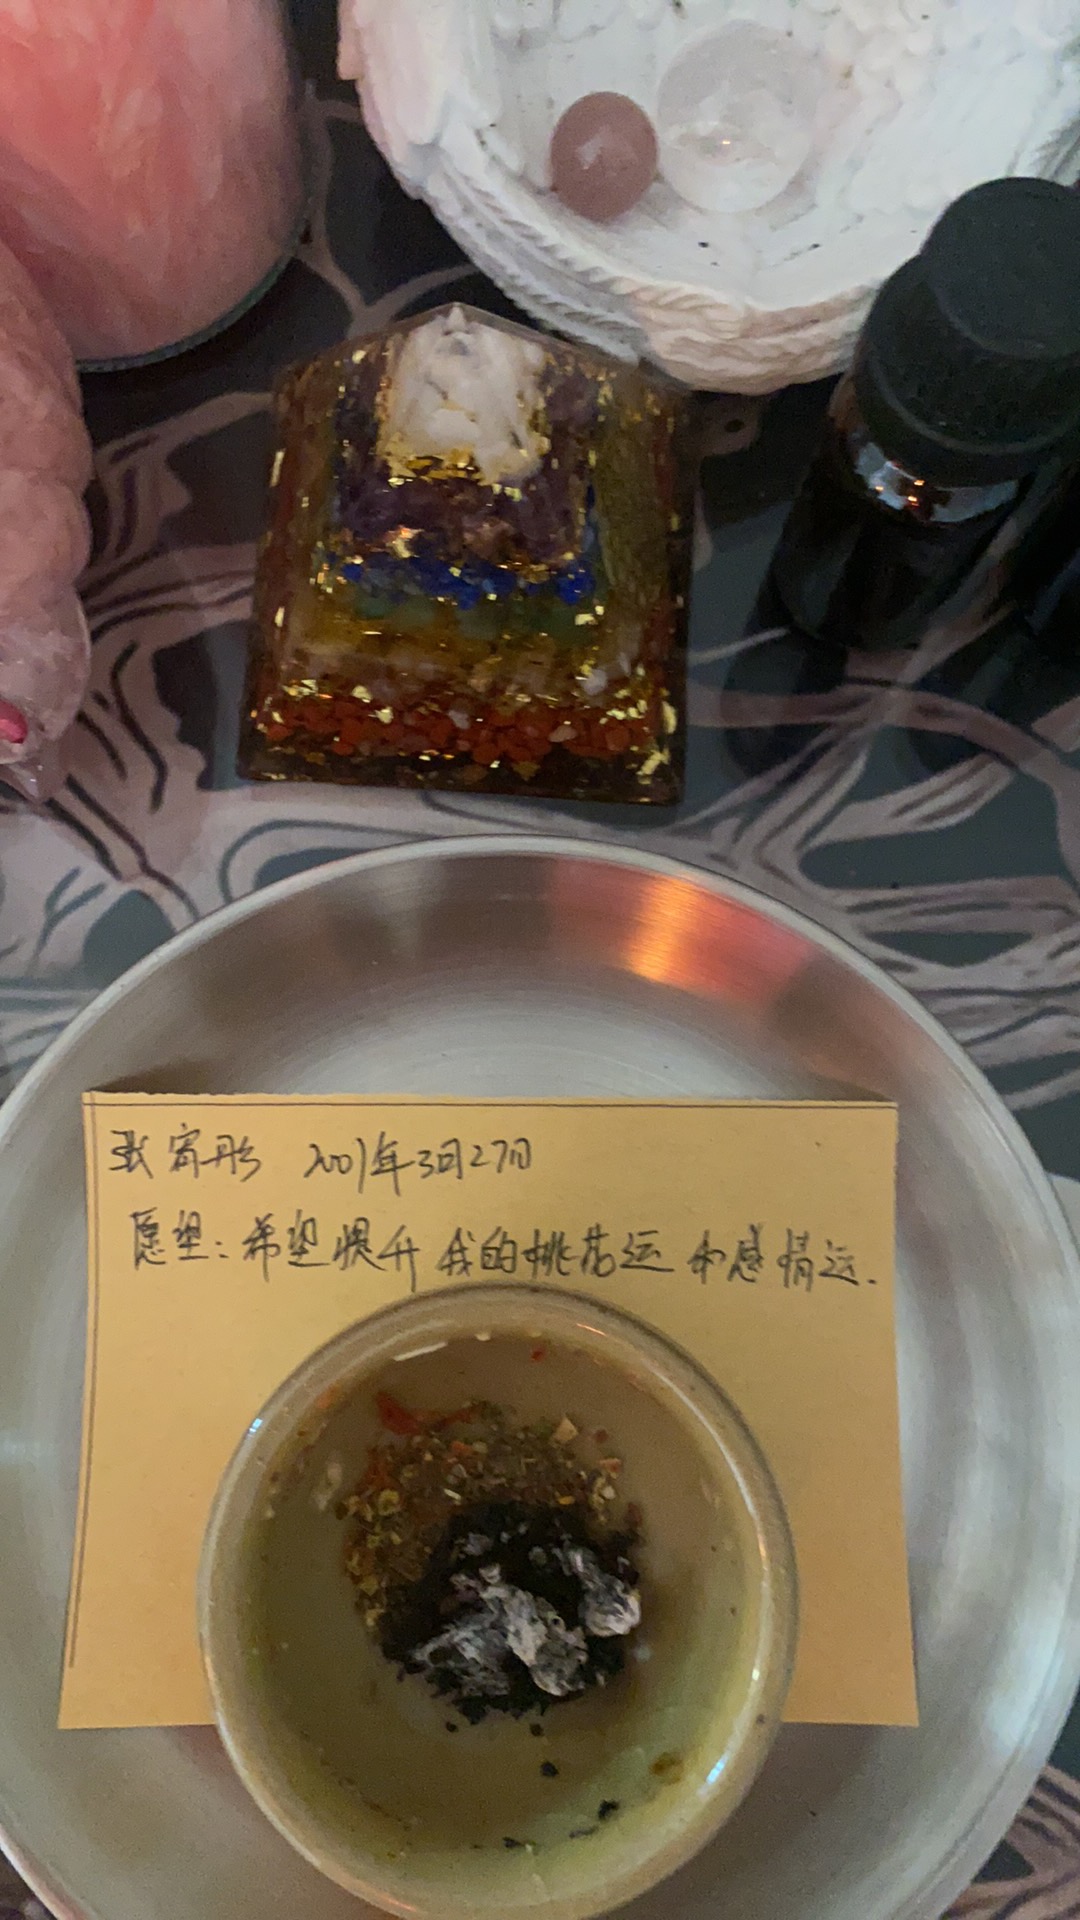 张宵彤 2001年3月27日
愿望：希望提升我的桃花运和感情运.